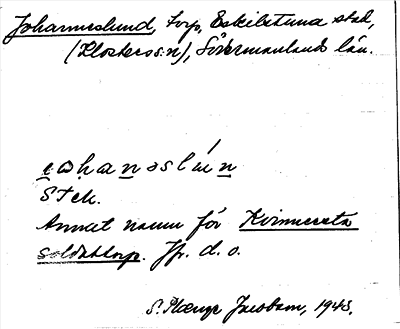 Johanneslund, torp, Eskilstuna stad,
(Klosters sn), Södermanlands län.
STck.
Annat namn för Kvinnersta
soldattorp. Jfr. d. o.
Jacobson, 1943.